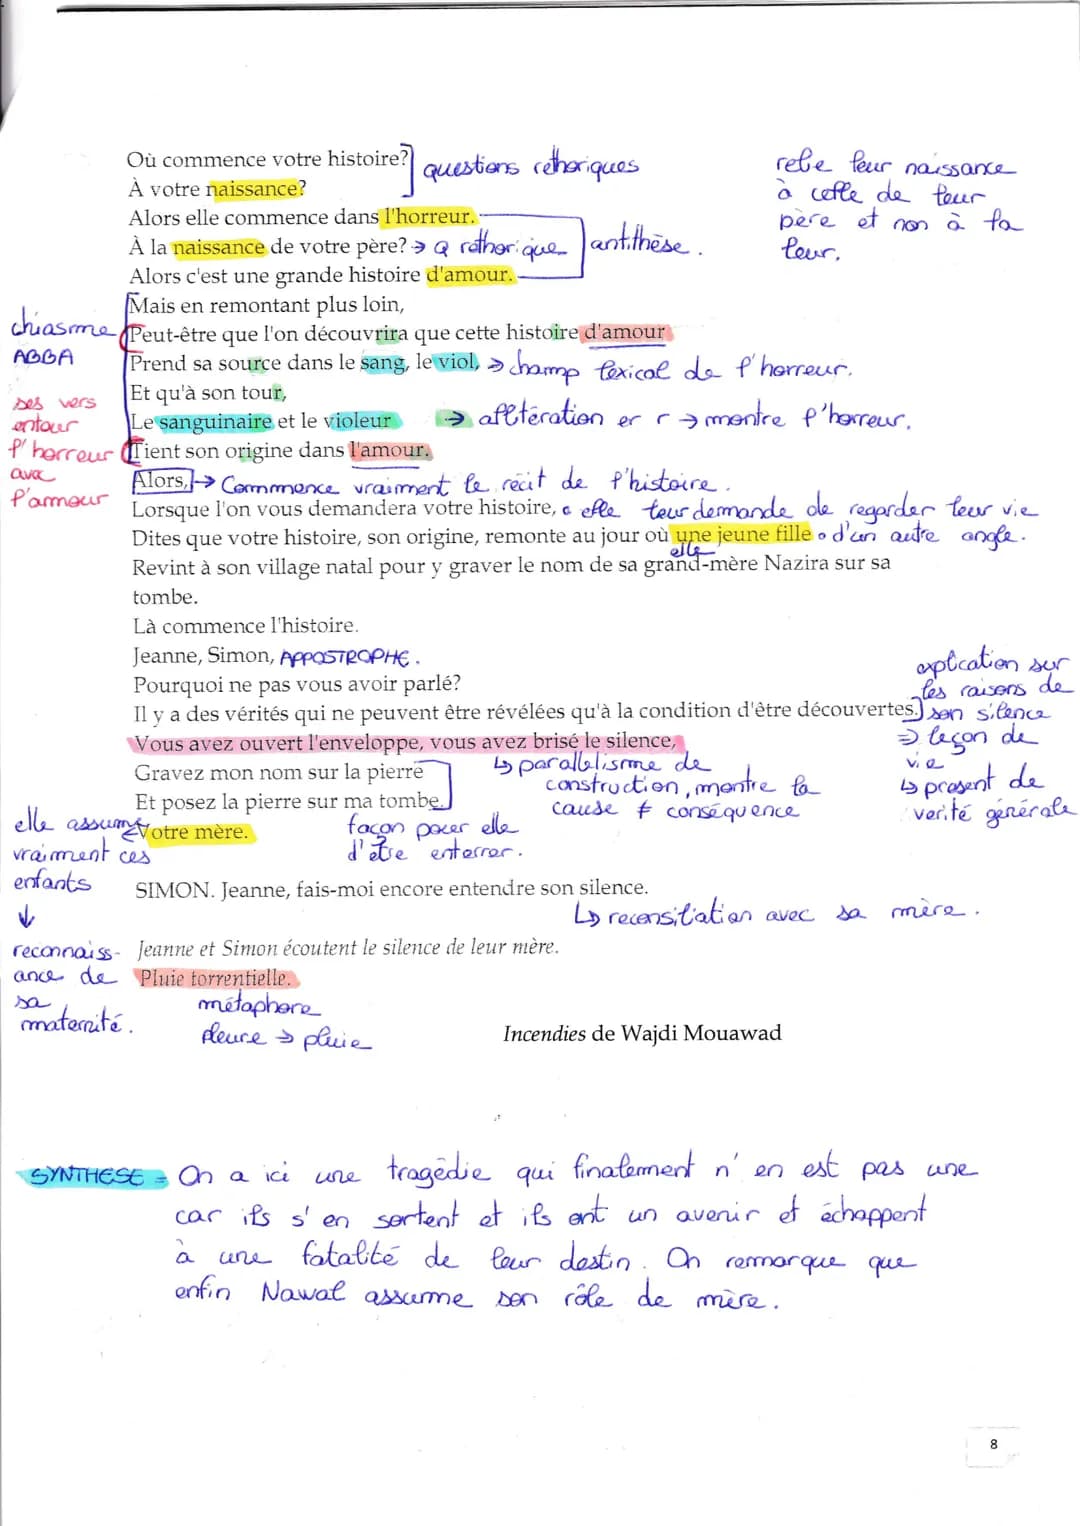 Où commence votre histoire? questions réthoriques
À votre naissance?
relie leur naissance
à celle de leur
père et non à la
leur.
Alors elle commence dans l'horreur.
À la naissance de votre père? → Q réthorique antithèse.
Alors c'est une grande histoire d'amour.
Mais en remontant plus loin,
chiasme
ABBA
Peut-être que l'on découvrira que cette histoire d'amour
Prend sa source dans le sang, le viol, → champ lexical de l'horreur.
Et qu'à son tour,
ses vers
entour
l'horreur
avec
l'amour
Le sanguinaire et le violeur → allitération er r → montre l'horreur.
Tient son origine dans l'amour.
Alors, → Commence vraiment le récit de l'histoire.
Lorsque l'on vous demandera votre histoire, elle leur demande de regarder leur vie
Dites que votre histoire, son origine, remonte au jour où une jeune fille d'un autre angle.
elle
Revint à son village natal pour y graver le nom de sa grand-mère Nazira sur sa
tombe.
Là commence l'histoire.
Jeanne, Simon, APPOSTROPHE.
Pourquoi ne pas vous avoir parlé?
Il y a des vérités qui ne peuvent être révélées qu'à la condition d'être découvertes.
explication sur
les raisons de
son silence
⇒ leçon de
vie
↳ présent de
verité générale
Vous avez ouvert l'enveloppe, vous avez brisé le silence,
↳ parallelisme de
construction, montre la
cause ≠ conséquence
Gravez mon nom sur la pierre
Et posez la pierre sur ma tombe.
façon pour elle
d'être enterrer.
Votre mère.
elle assume
vraiment ces
enfants
↓
reconnaiss-
ance de
sa
maternité.
SIMON. Jeanne, fais-moi encore entendre son silence.
↳ reconsiliation avec sa mère.
Jeanne et Simon écoutent le silence de leur mère.
Pluie torrentielle.
métaphore
pleure → pluie
Incendies de Wajdi Mouawad
SYNTHESE = On a ici une tragédie qui finalement n'en est pas une
car ils s'en sortent et ils ont un avenir et échappent
à une fatalité de leur destin. On remarque que
enfin Nawal assume son rôle de mère.
8